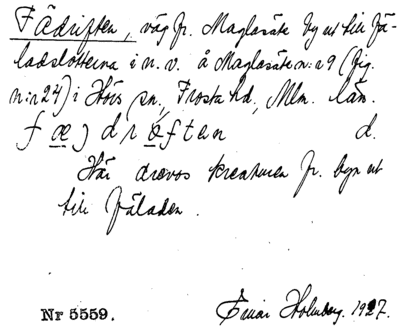 Fädriften, väg fr. Maglasäte by ut till Fä-
ladslotterna i n. v. å Maglasäte n:r 9 (fig.
n:r 24) i Hörs sn, Frosta hd, Mlm. län.
f æ j d r ę f t e n d.
Här drevos kreaturen fr. byn ut
till fäladen.
Nr 5559. Einar Holmberg. 1927.